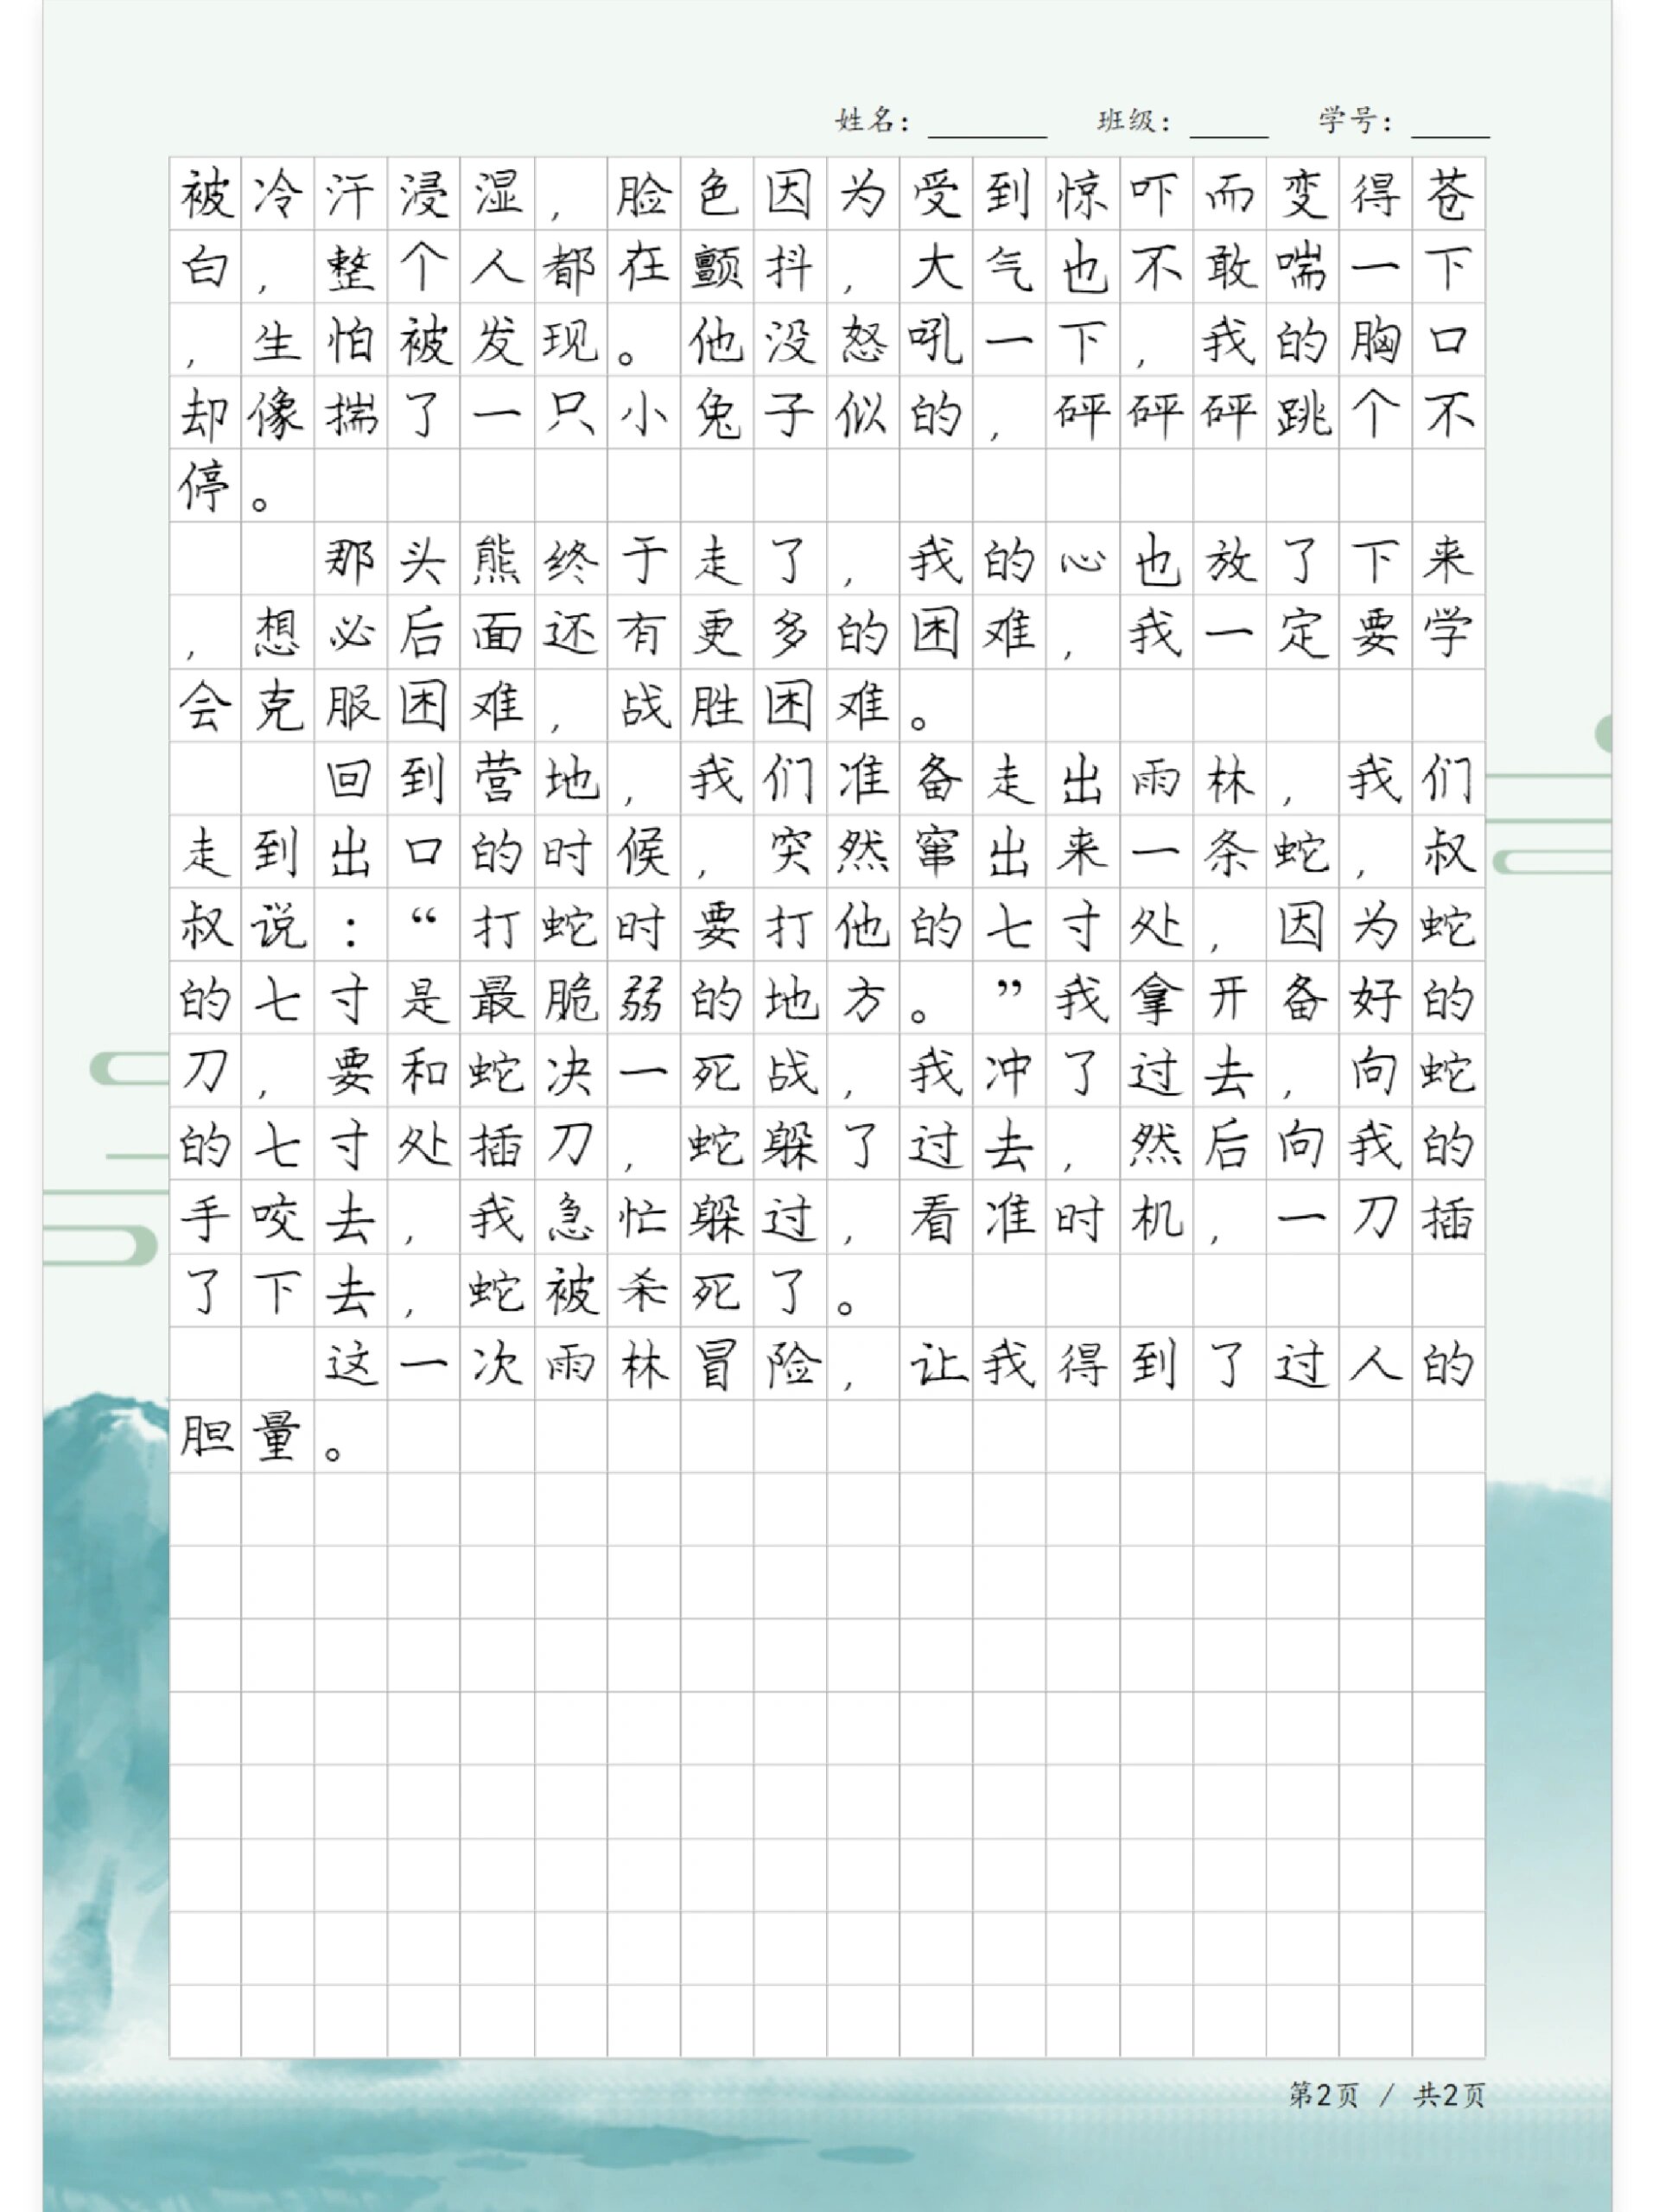 姓名： 班级： 学号：
被冷汗浸湿，脸色因为受到惊吓而变得苍
白，整个人都在颤抖，大气也不敢喘一下
，生怕被发现。他没怒吼一下，我的胸口
却像揣了一只小兔子似的，砰砰砰跳个不
停。
那头熊终于走了，我的心也放了下来
，想必后面还有更多的困难，我一定要学
会克服困难，战胜困难。
回到营地，我们准备走出雨林，我们
走到出口的时候，突然窜出来一条蛇，叔
叔说：“打蛇时要打他的七寸处，因为蛇
的七寸是最脆弱的地方。”我拿开备好的
刀，要和蛇决一死战，我冲了过去，向蛇
的七寸处插刀，蛇躲了过去，然后向我的
手咬去，我急忙躲过，看准时机，一刀插
了下去，蛇被杀死了。
这一次雨林冒险，让我得到了过人的
胆量。
第2页 / 共2页